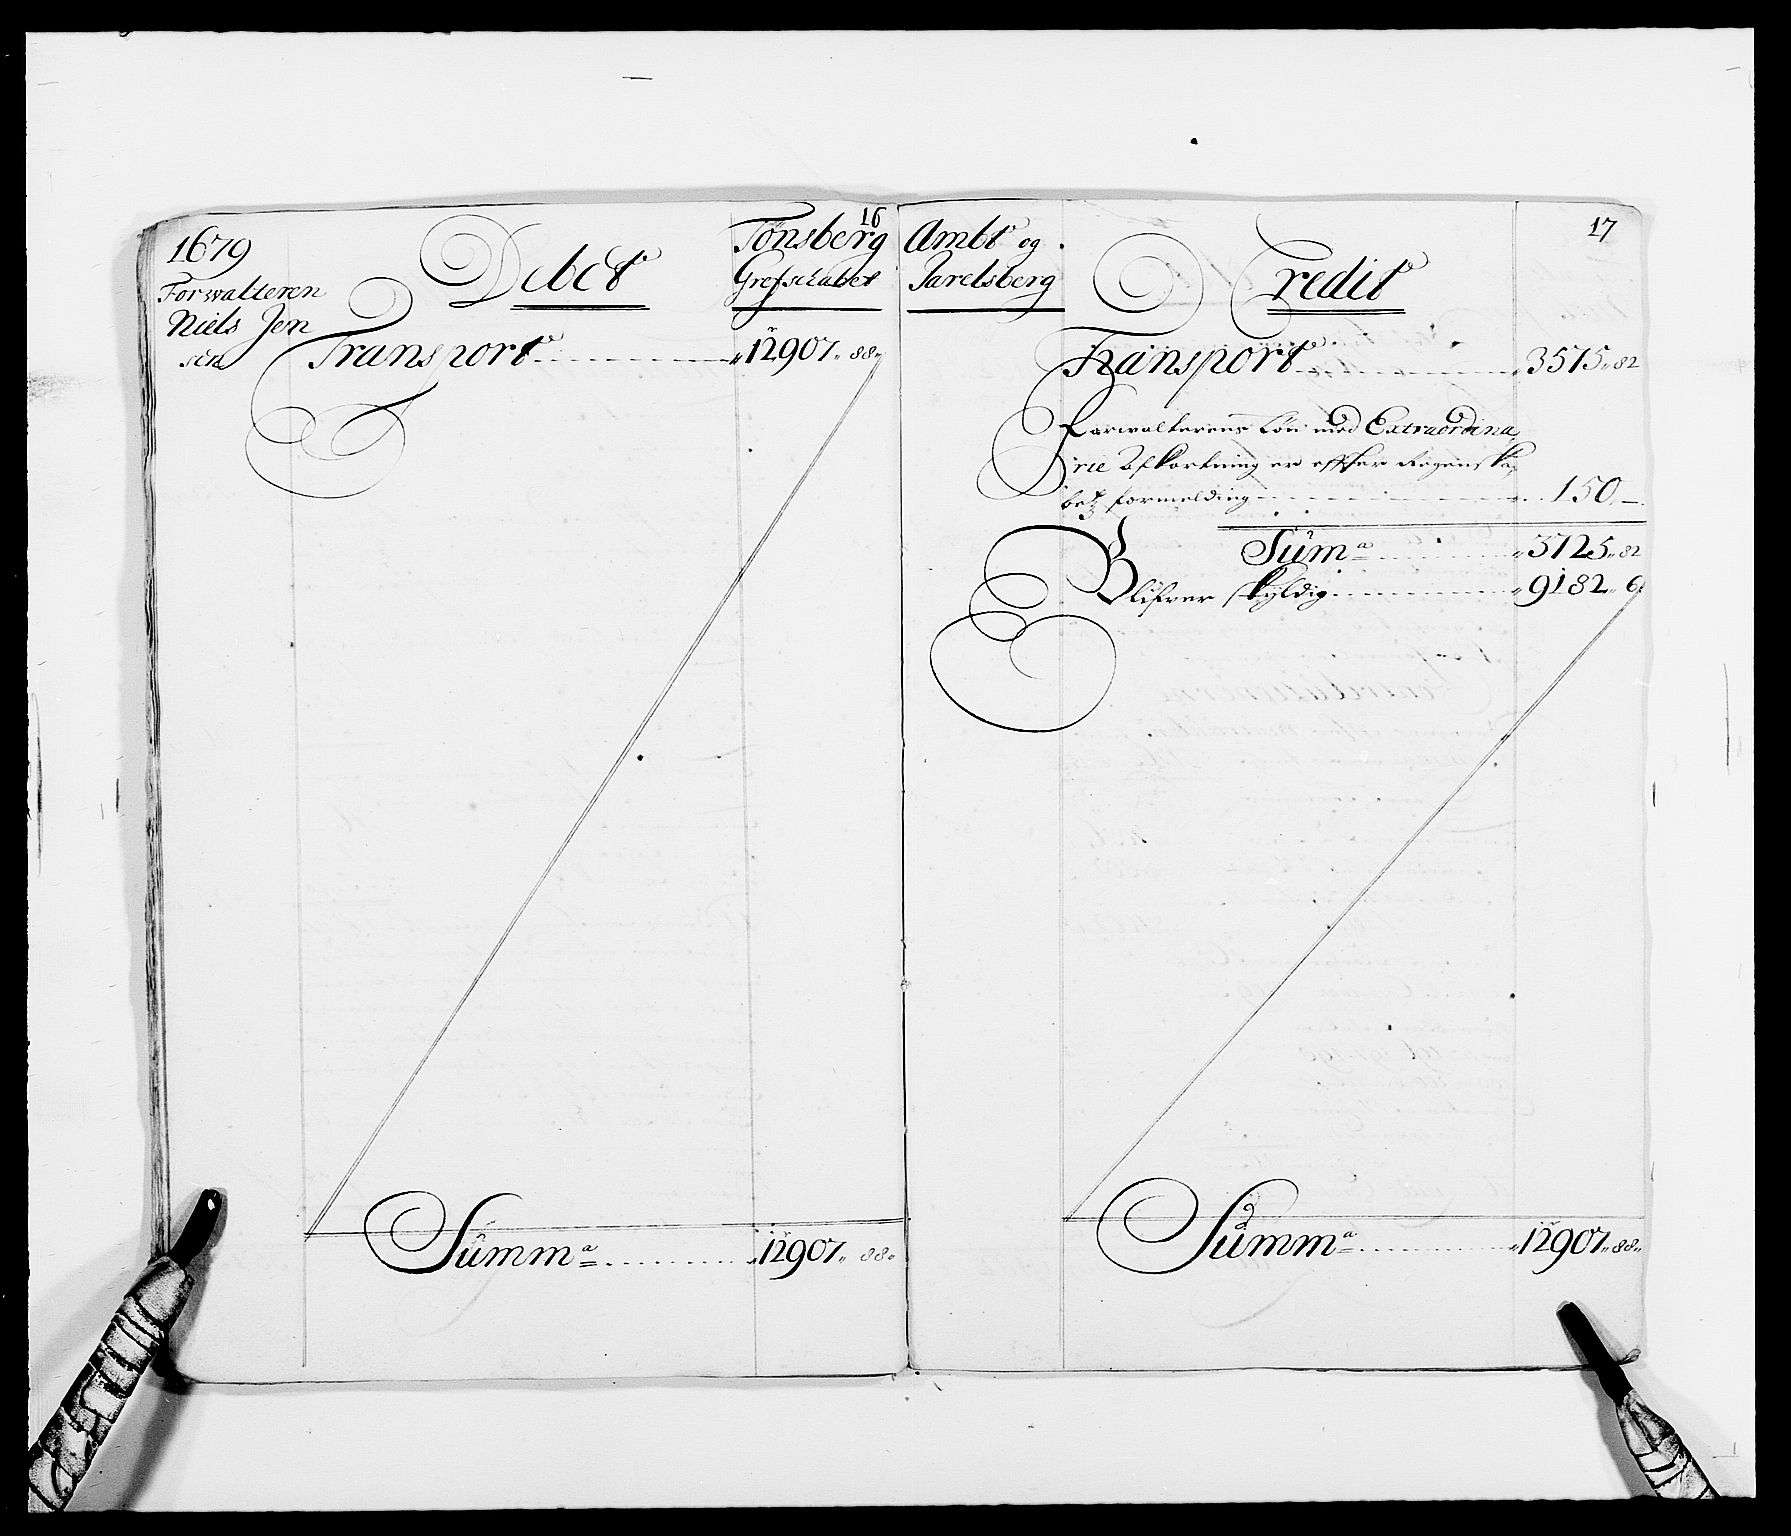 16
1679
Forwalteren
Niels Jen
sen
Debet
Tonsberg
Grefschabet
Transport 12907 88
Summa 12907 88
17
Ambt og
Jarelsberg
Credit
Transport 3575 82
Forwalterens Løn med Extraordina
rie Afkortning er effter Regenska
betz formelding 150 -
Suma 3725 82
Blifver skyldig 9182 6
Summa 12907 88